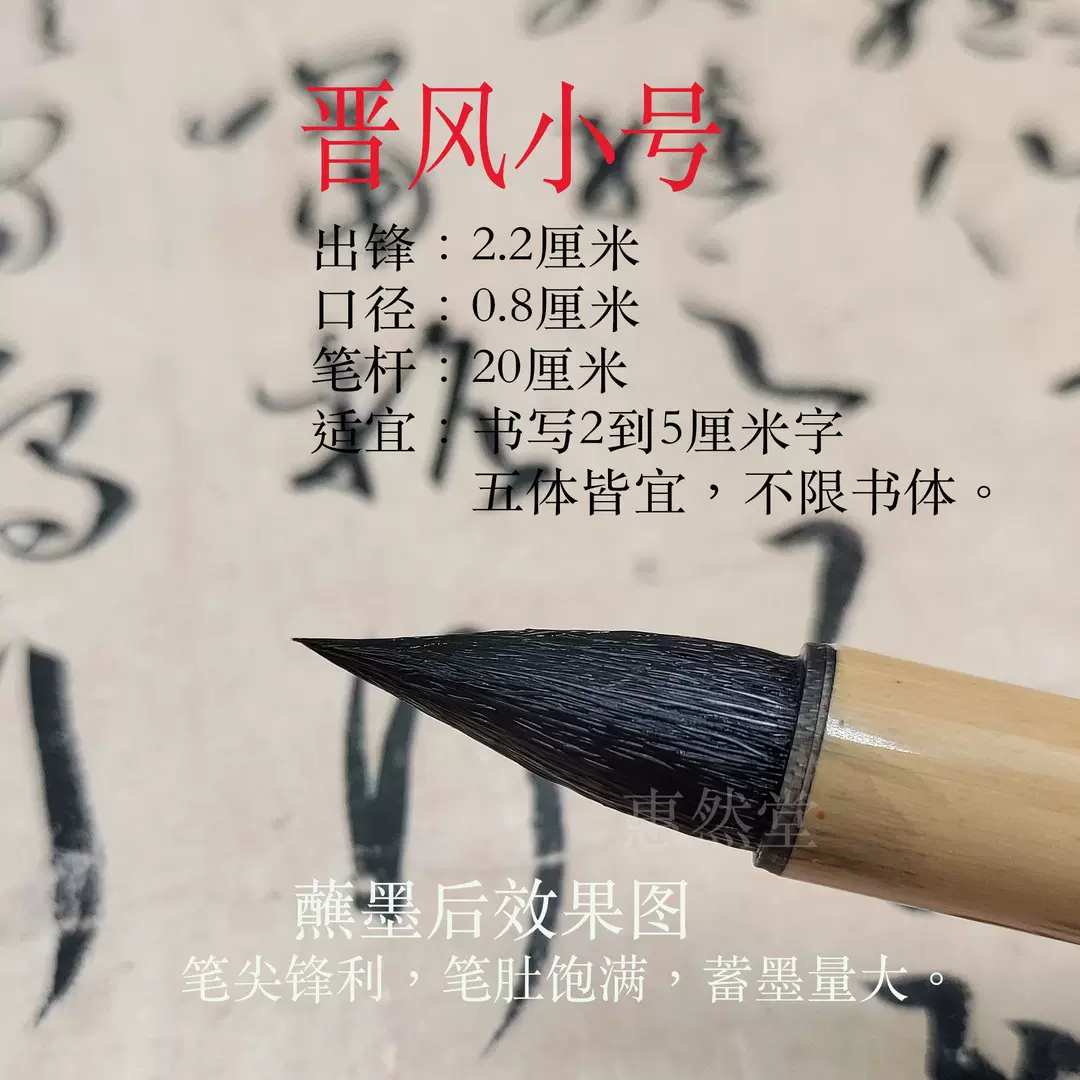 晋风小号
出锋：2.2厘米
口径：0.8厘米
笔杆：20厘米
适宜：书写2到5厘米字
五体皆宜，不限书体。
惠然堂
蘸墨后效果图
笔尖锋利，笔肚饱满，蓄墨量大。